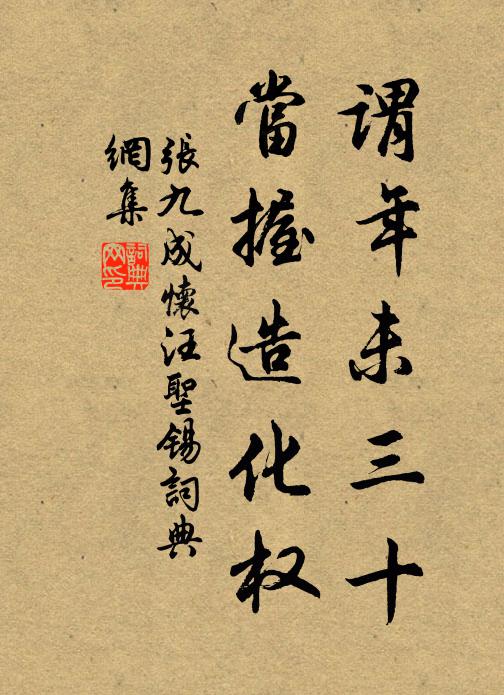 謂年未三十
當握造化权
張九成懷汪聖錫詞典
網集
詞典
网印